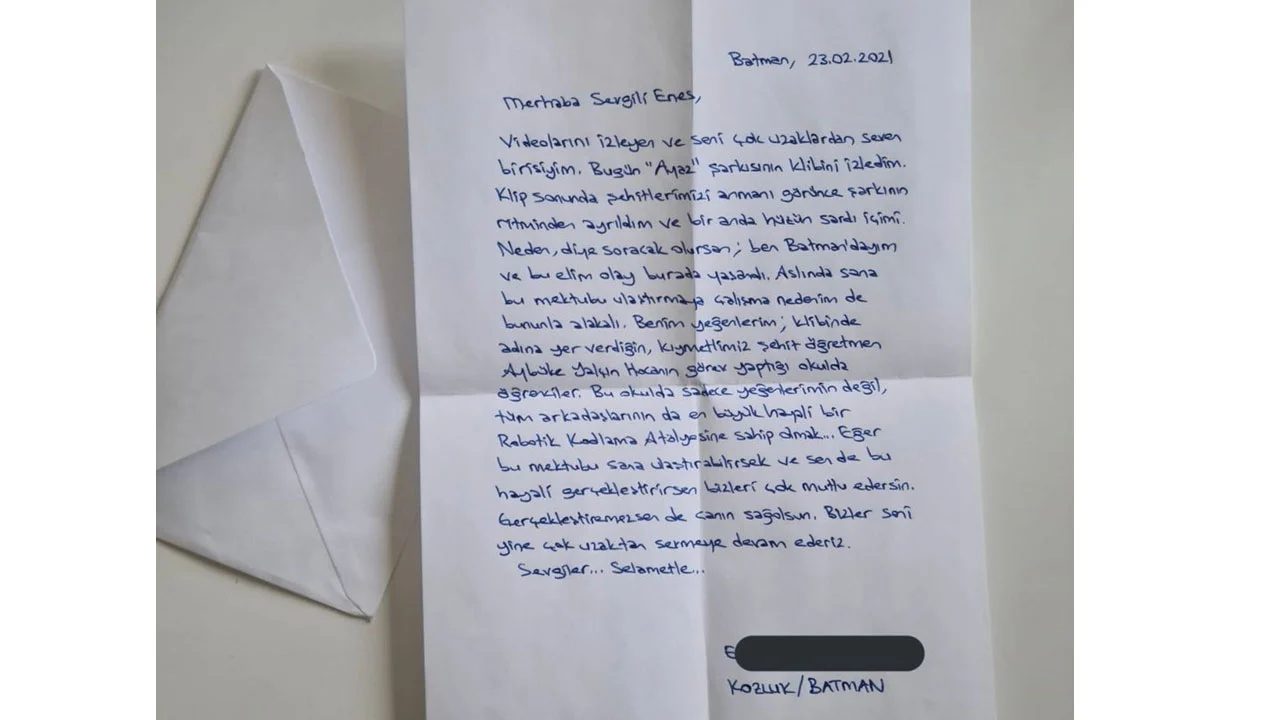 Batman, 23.02.2021
Merhaba Sevgili Enes,
Videolarını izleyen ve seni çok uzaklardan seven
birisiyim. Bugün "Ayaz" şarkısının klibini izledim.
Klip sonunda şehitlerimizi anmanı görünce şarkının
ritminden ayrıldım ve bir anda hüzün sardı içimi.
Neden, diye soracak olursan; ben Batman'dayım
ve bu elim olay burada yaşandı. Aslında sana
bu mektubu ulaştırmaya çalışma nedenim de
bununla alakalı. Benim yeğenlerim; klibinde
adına yer verdiğin, kıymetlimiz şehit öğretmen
Aybüke Yalçın Hocanın görev yaptığı okulda
öğrenciler. Bu okulda sadece yeğenlerimin değil,
tüm arkadaşlarının da en büyük hayali bir
Robotik Kodlama Atölyesine sahip olmak... Eğer
bu mektubu sana ulaştırabilirsek ve sen de bu
hayali gerçekleştirirsen bizleri çok mutlu edersin.
Gerçekleştiremezsen de canın sağolsun. Bizler seni
yine çok uzaktan sevmeye devam ederiz.
Sevgiler... Selametle...
E
KOZLUK/BATMAN